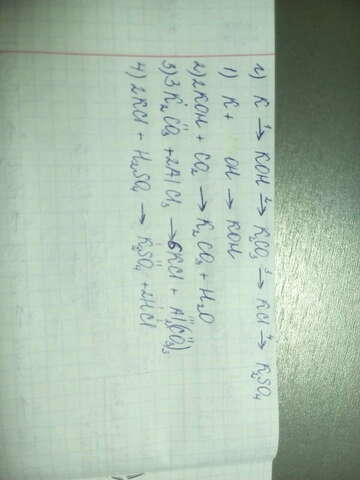 г) K →¹ KOH →² K₂CO₃ →³ KCl →⁴ K₂SO₄
1) K + OH → KOH
2) 2KOH + CO₂ → K₂CO₃ + H₂O
3) 3K₂CO₃ + 2AlCl₃ → 6KCl + Al₂(CO₃)₃
4) 2KCl + H₂SO₄ → K₂SO₄ + 2HCl